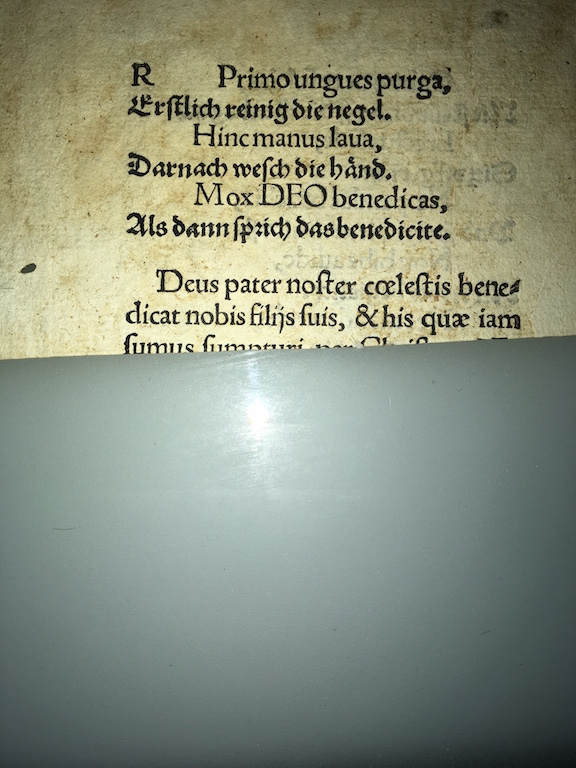 R Primo ungues purga,
Erſtlich reinig die negel.
Hinc manus laua,
Darnach weſch die händ.
Mox DEO benedicas,
Als dann ſprich das benedicite.
Deus pater noſter cœleſtis bene⸗
dicat nobis filijs ſuis, & his quæ iam
ſumus ſumpturi per